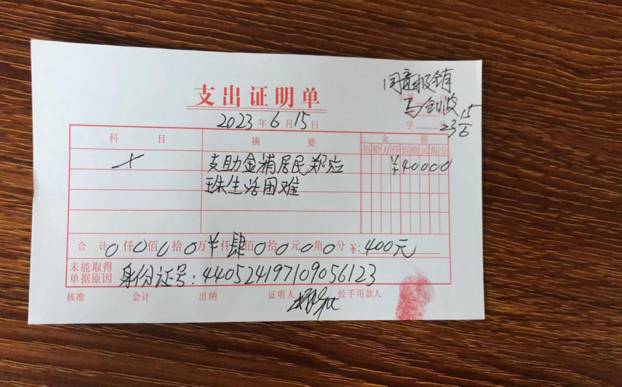 同意报销
支出证明单
2023年6月15日
字
23 15/6
科目 摘要 金额
佰拾万仟佰拾元角分
支助金浦居民郑应 ¥40000
珠生活困难
合计0仟0佰0拾0万¥仟肆佰0拾0元0角0分¥:400元
未能取得单据原因 身份证号:440524197109056123
核准 会计 出纳 证明人 经手用款人